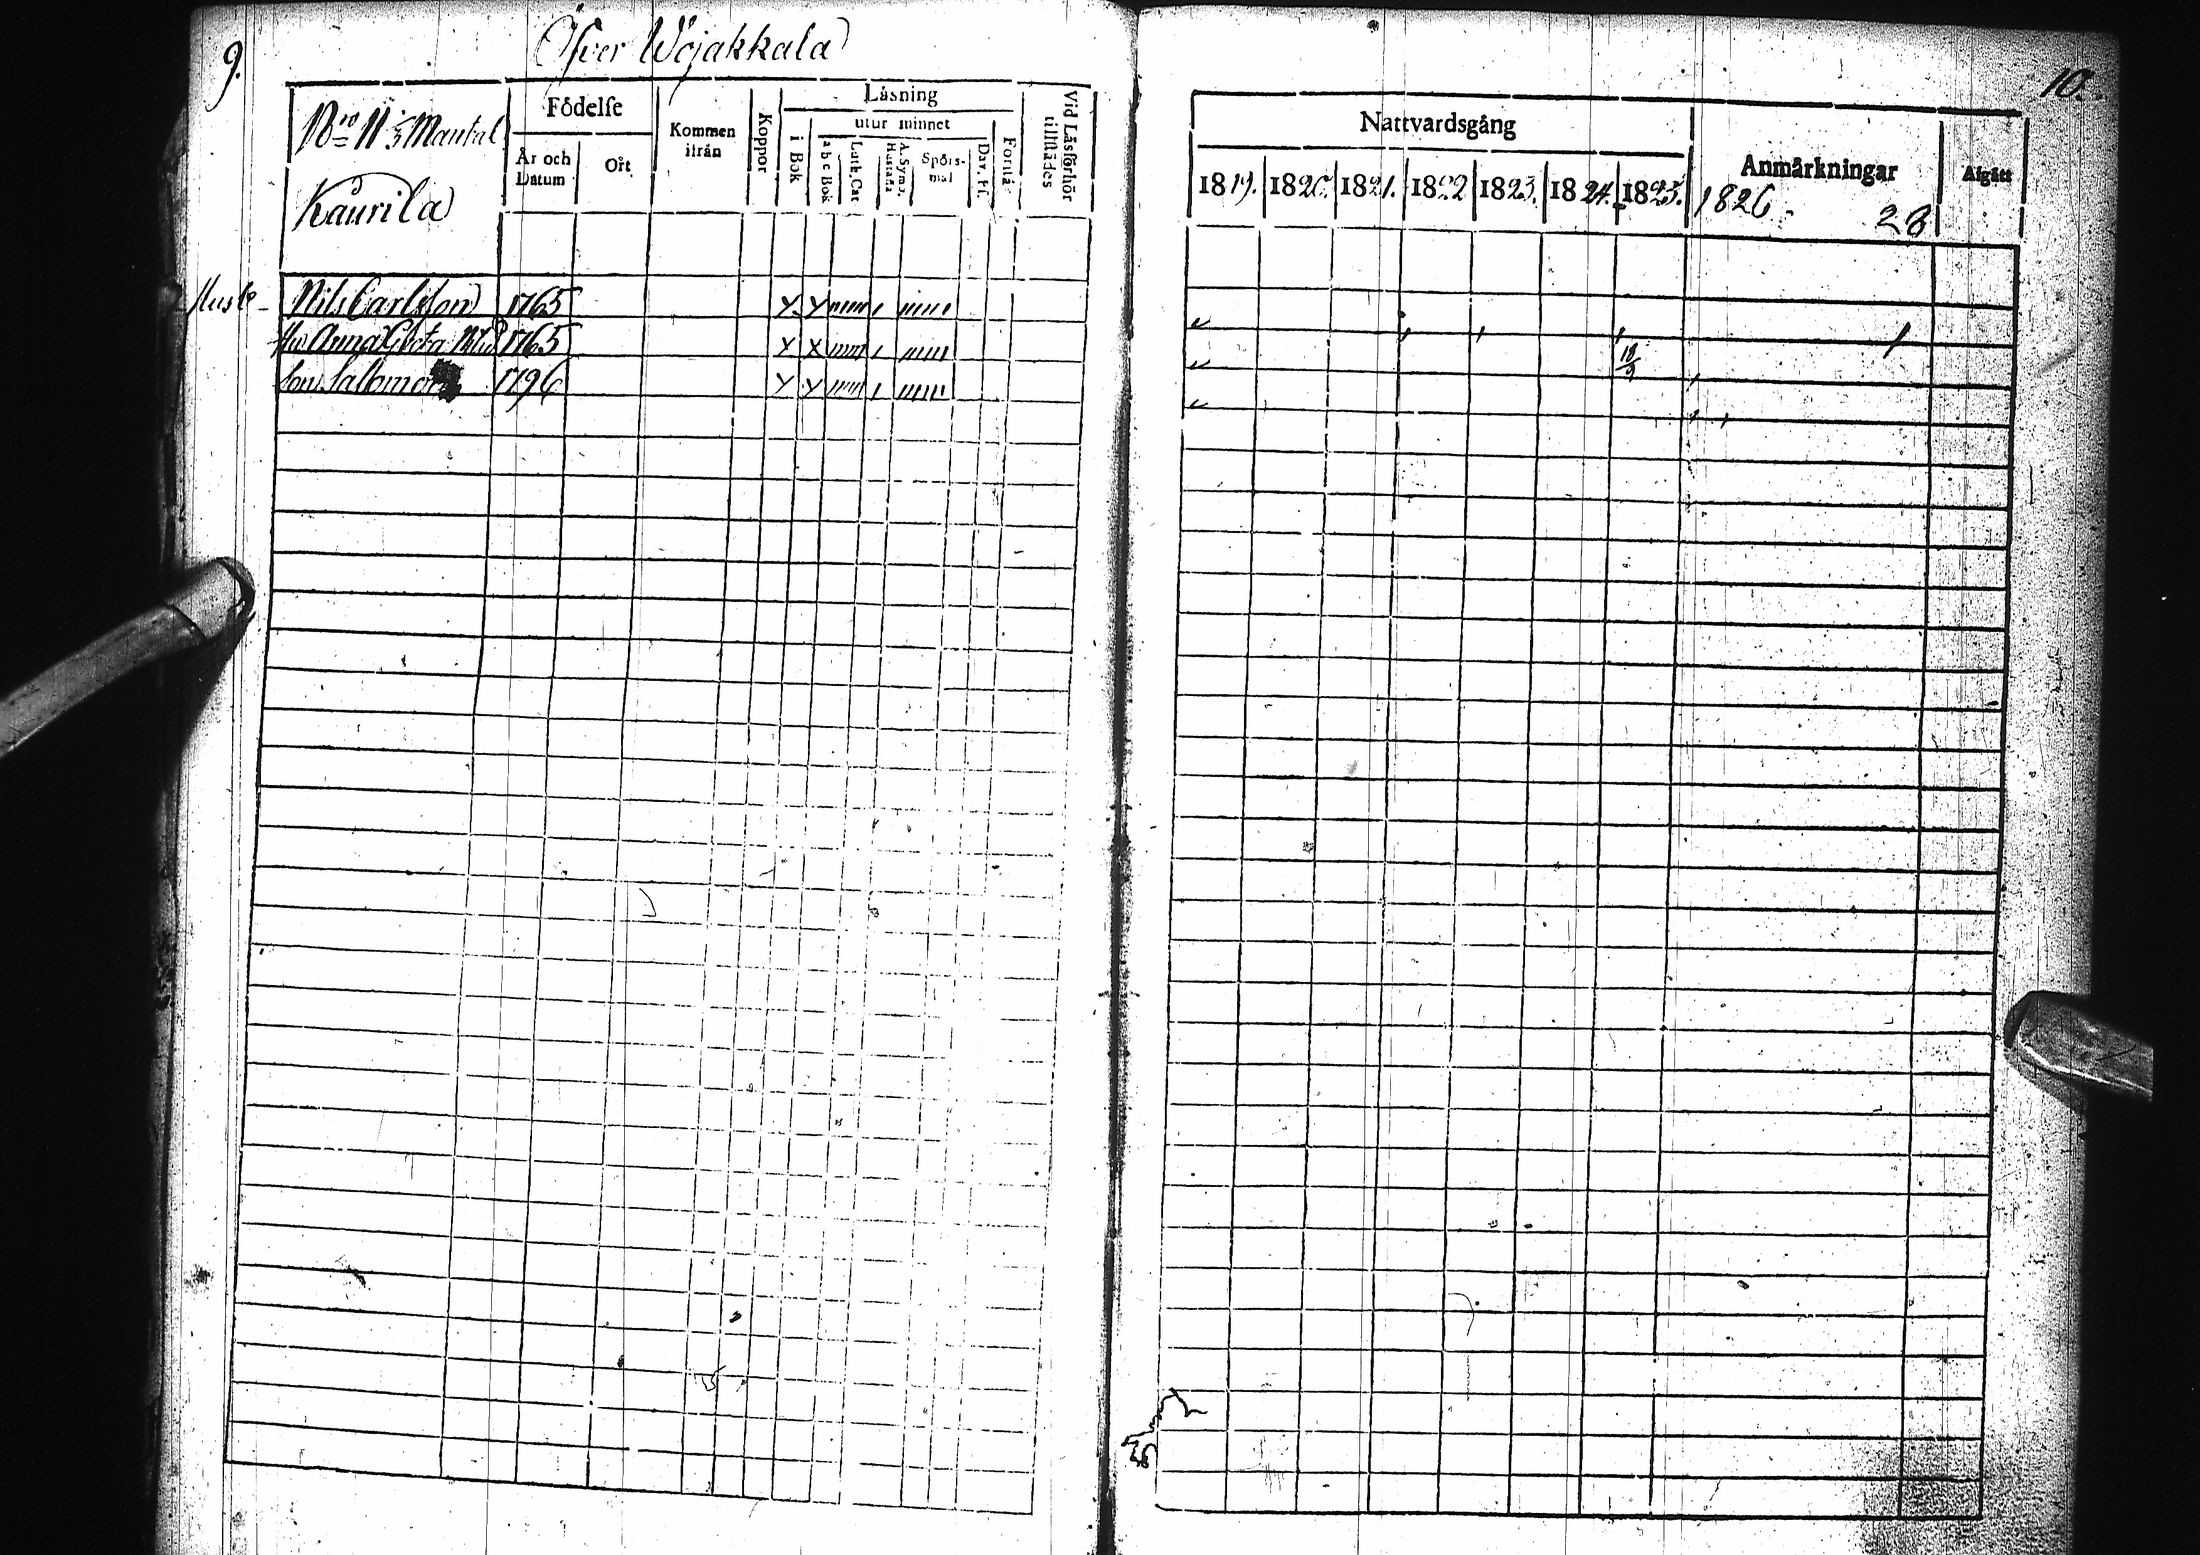 9.
Öfver Wojakkala
N:ro 11 1/3 Mantal
Kaurila
Födelse
År och Datum
Ort
Kommen ifrån
Koppor
Läsning
i Bok
utur minnet
a b c Bok
Luth. Cat
A. Symb. Hustafla
Spörsmål
Dav. Ps.
Förstå
Vid Läsförhör tillstädes
Nils Carlsson 1765
Hu Anna Greta 1765
Son Salomon 1796
10.
Nattvardsgång
1819. 1820. 1821. 1822 1823. 1824. 1825.
Anmärkningar
1826. 28
Afgått
18/9